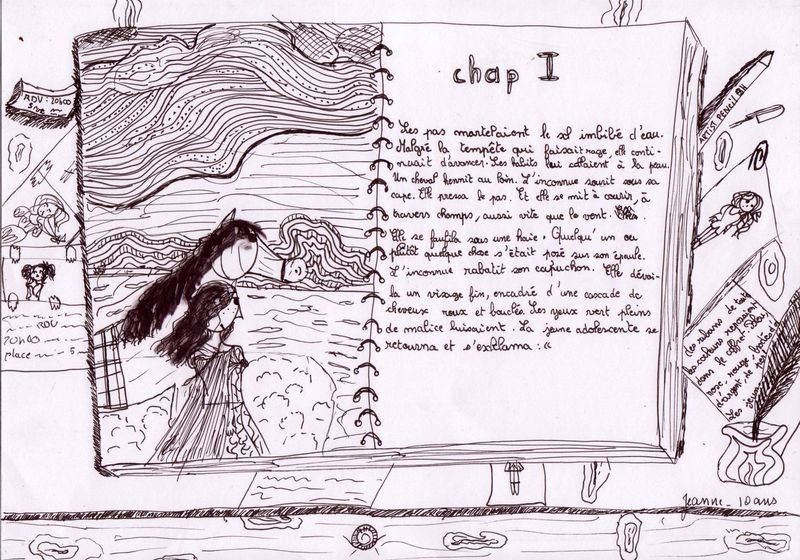 chap I
Les pas martelaient le sol imbibé d'eau.
Malgré la tempête qui faisait rage, elle conti-
nuait d'avancer. Les habits lui collaient à la peau.
Un cheval hennit au loin. L'inconnue sourit sous sa
cape. Elle pressa le pas. Et elle se mit à courir, à
travers champs, aussi vite que le vent.
Elle se faufila sous une haie. Quelqu'un ou
plutôt quelque chose s'était posé sur son épaule.
L'inconnue rabatit son capuchon. Elle dévoi-
la un visage fin, encadré d'une cascade de
cheveux roux et bouclés. Les yeux vert pleins
de malice luisaient. La jeune adolescente se
retourna et s'exklama : «
RDV : 20h00
RDV
20h00
place 5
ARTIST PENCIL
Les rubans de
les couleurs
dans le coffret
rose, rouge,
d'argent,
Les
Jeanne - 10 ans